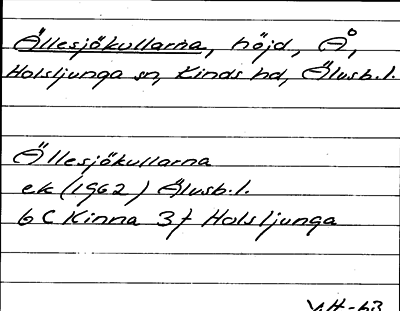 Ällesjökullarna, höjd, Å,
Holsljunga sn, Kinds hd, Älvsb.l.
Ällesjökullarna
ek (1962) Älvsb.l.
6C Kinna 3f Holsljunga